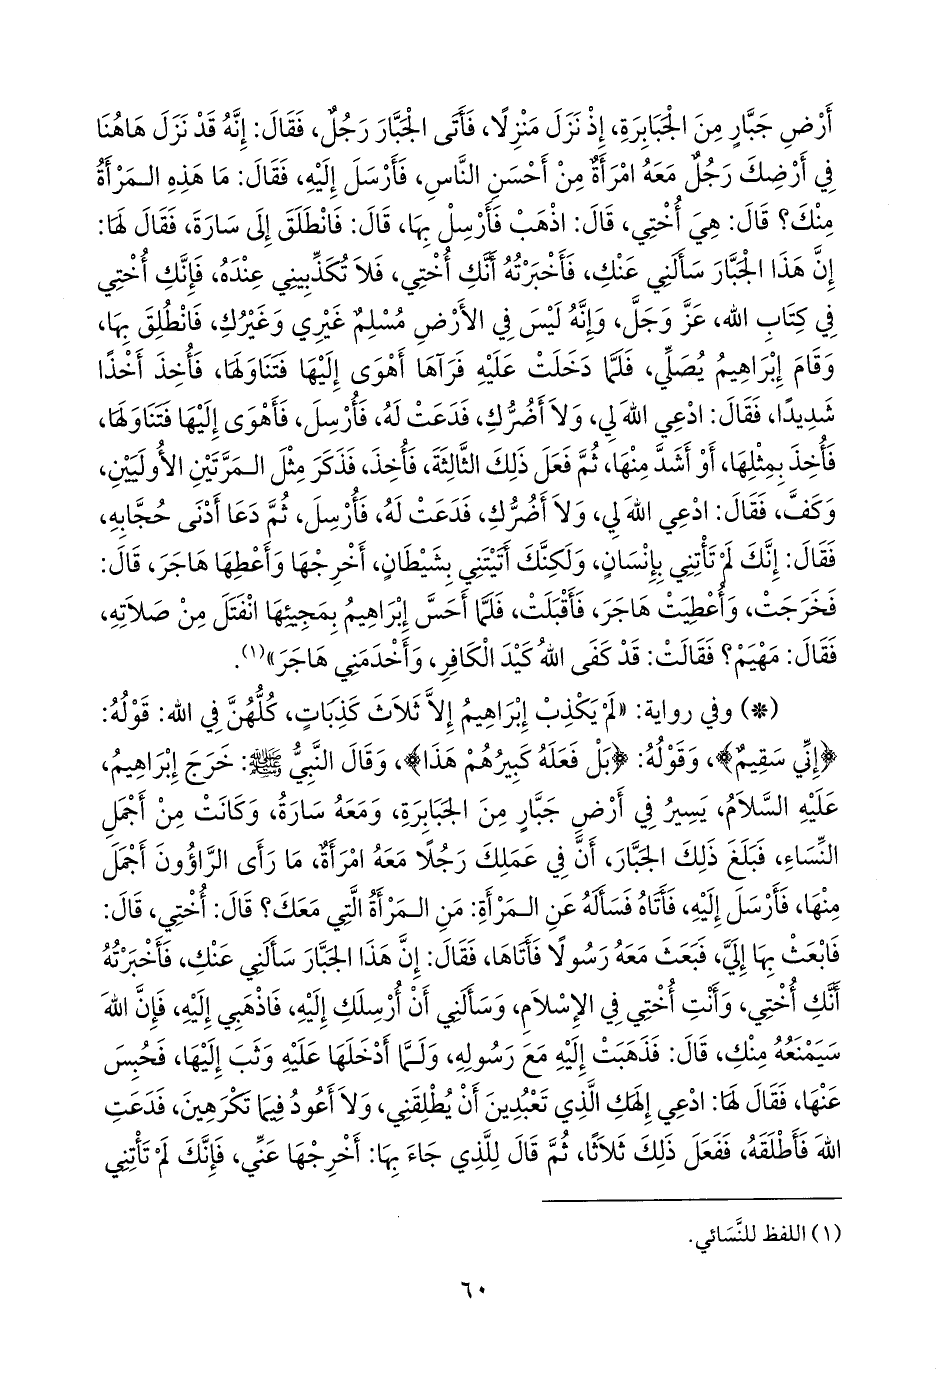 أَرْضِ جَبَّارٍ مِنَ الْجَبَابِرَةِ، إِذْ نَزَلَ مَنْزِلًا، فَأَتَى الْجَبَّارَ رَجُلٌ، فَقَالَ: إِنَّهُ قَدْ نَزَلَ هَاهُنَا
فِي أَرْضِكَ رَجُلٌ مَعَهُ امْرَأَةٌ مِنْ أَحْسَنِ النَّاسِ، فَأَرْسَلَ إِلَيْهِ، فَقَالَ: مَا هَذِهِ الـمَرْأَةُ
مِنْكَ؟ قَالَ: هِيَ أُخْتِي، قَالَ: اذْهَبْ فَأَرْسِلْ بِهَا، قَالَ: فَانْطَلَقَ إِلَى سَارَةَ، فَقَالَ لَهَا:
إِنَّ هَذَا الْجَبَّارَ سَأَلَنِي عَنْكِ، فَأَخْبَرْتُهُ أَنَّكِ أُخْتِي، فَلاَ تُكَذِّبِينِي عِنْدَهُ، فَإِنَّكِ أُخْتِي
فِي كِتَابِ الله، عَزَّ وَجَلَّ، وَإِنَّهُ لَيْسَ فِي الأَرْضِ مُسْلِمٌ غَيْرِي وَغَيْرُكِ، فَانْطُلِقَ بِهَا،
وَقَامَ إِبْرَاهِيمُ يُصَلِّي، فَلَمَّا دَخَلَتْ عَلَيْهِ فَرَآهَا أَهْوَى إِلَيْهَا فَتَنَاوَلَهَا، فَأُخِذَ أَخْذًا
شَدِيدًا، فَقَالَ: ادْعِي اللهَ لِي، وَلاَ أَضُرُّكِ، فَدَعَتْ لَهُ، فَأُرْسِلَ، فَأَهْوَى إِلَيْهَا فَتَنَاوَلَهَا،
فَأُخِذَ بِمِثْلِهَا، أَوْ أَشَدَّ مِنْهَا، ثُمَّ فَعَلَ ذَلِكَ الثَّالِثَةَ، فَأُخِذَ، فَذَكَرَ مِثْلَ الـمَرَّتَيْنِ الأُولَيَيْنِ،
وَكَفَّ، فَقَالَ: ادْعِي اللهَ لِي، وَلاَ أَضُرُّكِ، فَدَعَتْ لَهُ، فَأُرْسِلَ، ثُمَّ دَعَا أَدْنَى حُجَّابِهِ،
فَقَالَ: إِنَّكَ لَمْ تَأْتِنِي بِإِنْسَانٍ، وَلَكِنَّكَ أَتَيْتَنِي بِشَيْطَانٍ، أَخْرِجْهَا وَأَعْطِهَا هَاجَرَ، قَالَ:
فَخَرَجَتْ، وَأُعْطِيَتْ هَاجَرَ، فَأَقْبَلَتْ، فَلَمَّا أَحَسَّ إِبْرَاهِيمُ بِمَجِيئِهَا انْفَتَلَ مِنْ صَلاَتِهِ،
فَقَالَ: مَهْيَمْ؟ فَقَالَتْ: قَدْ كَفَى اللهُ كَيْدَ الْكَافِرِ، وَأَخْدَمَنِي هَاجَرَ»(١).
(*) وفي رواية: «لَمْ يَكْذِبْ إِبْرَاهِيمُ إِلاَّ ثَلاَثَ كَذِبَاتٍ، كُلُّهُنَّ فِي الله: قَوْلُهُ:
﴿إِنِّي سَقِيمٌ﴾، وَقَوْلُهُ: ﴿بَلْ فَعَلَهُ كَبِيرُهُمْ هَذَا﴾، وَقَالَ النَّبِيُّ ﷺ: خَرَجَ إِبْرَاهِيمُ،
عَلَيْهِ السَّلاَمُ، يَسِيرُ فِي أَرْضِ جَبَّارٍ مِنَ الجَبَابِرَةِ، وَمَعَهُ سَارَةُ، وَكَانَتْ مِنْ أَجْمَلِ
النِّسَاءِ، فَبَلَغَ ذَلِكَ الجَبَّارَ، أَنَّ فِي عَمَلِكَ رَجُلًا مَعَهُ امْرَأَةٌ، مَا رَأَى الرَّاؤُونَ أَجْمَلَ
مِنْهَا، فَأَرْسَلَ إِلَيْهِ، فَأَتَاهُ فَسَأَلَهُ عَنِ الـمَرْأَةِ: مَنِ الـمَرْأَةُ الَّتِي مَعَكَ؟ قَالَ: أُخْتِي، قَالَ:
فَابْعَثْ بِهَا إِلَيَّ، فَبَعَثَ مَعَهُ رَسُولًا فَأَتَاهَا، فَقَالَ: إِنَّ هَذَا الجَبَّارَ سَأَلَنِي عَنْكِ، فَأَخْبَرْتُهُ
أَنَّكِ أُخْتِي، وَأَنْتِ أُخْتِي فِي الإِسْلاَمِ، وَسَأَلَنِي أَنْ أُرْسِلَكِ إِلَيْهِ، فَاذْهَبِي إِلَيْهِ، فَإِنَّ اللهَ
سَيَمْنَعُهُ مِنْكِ، قَالَ: فَذَهَبَتْ إِلَيْهِ مَعَ رَسُولِهِ، وَلَـمَّا أَدْخَلَهَا عَلَيْهِ وَثَبَ إِلَيْهَا، فَحُبِسَ
عَنْهَا، فَقَالَ لَهَا: ادْعِي إِلَهَكِ الَّذِي تَعْبُدِينَ أَنْ يُطْلِقَنِي، وَلاَ أَعُودُ فِيمَا تَكْرَهِينَ، فَدَعَتِ
اللهَ فَأَطْلَقَهُ، فَفَعَلَ ذَلِكَ ثَلاَثًا، ثُمَّ قَالَ لِلَّذِي جَاءَ بِهَا: أَخْرِجْهَا عَنِّي، فَإِنَّكَ لَمْ تَأْتِنِي
(١) اللفظ للنَّسَائي.
٦٠